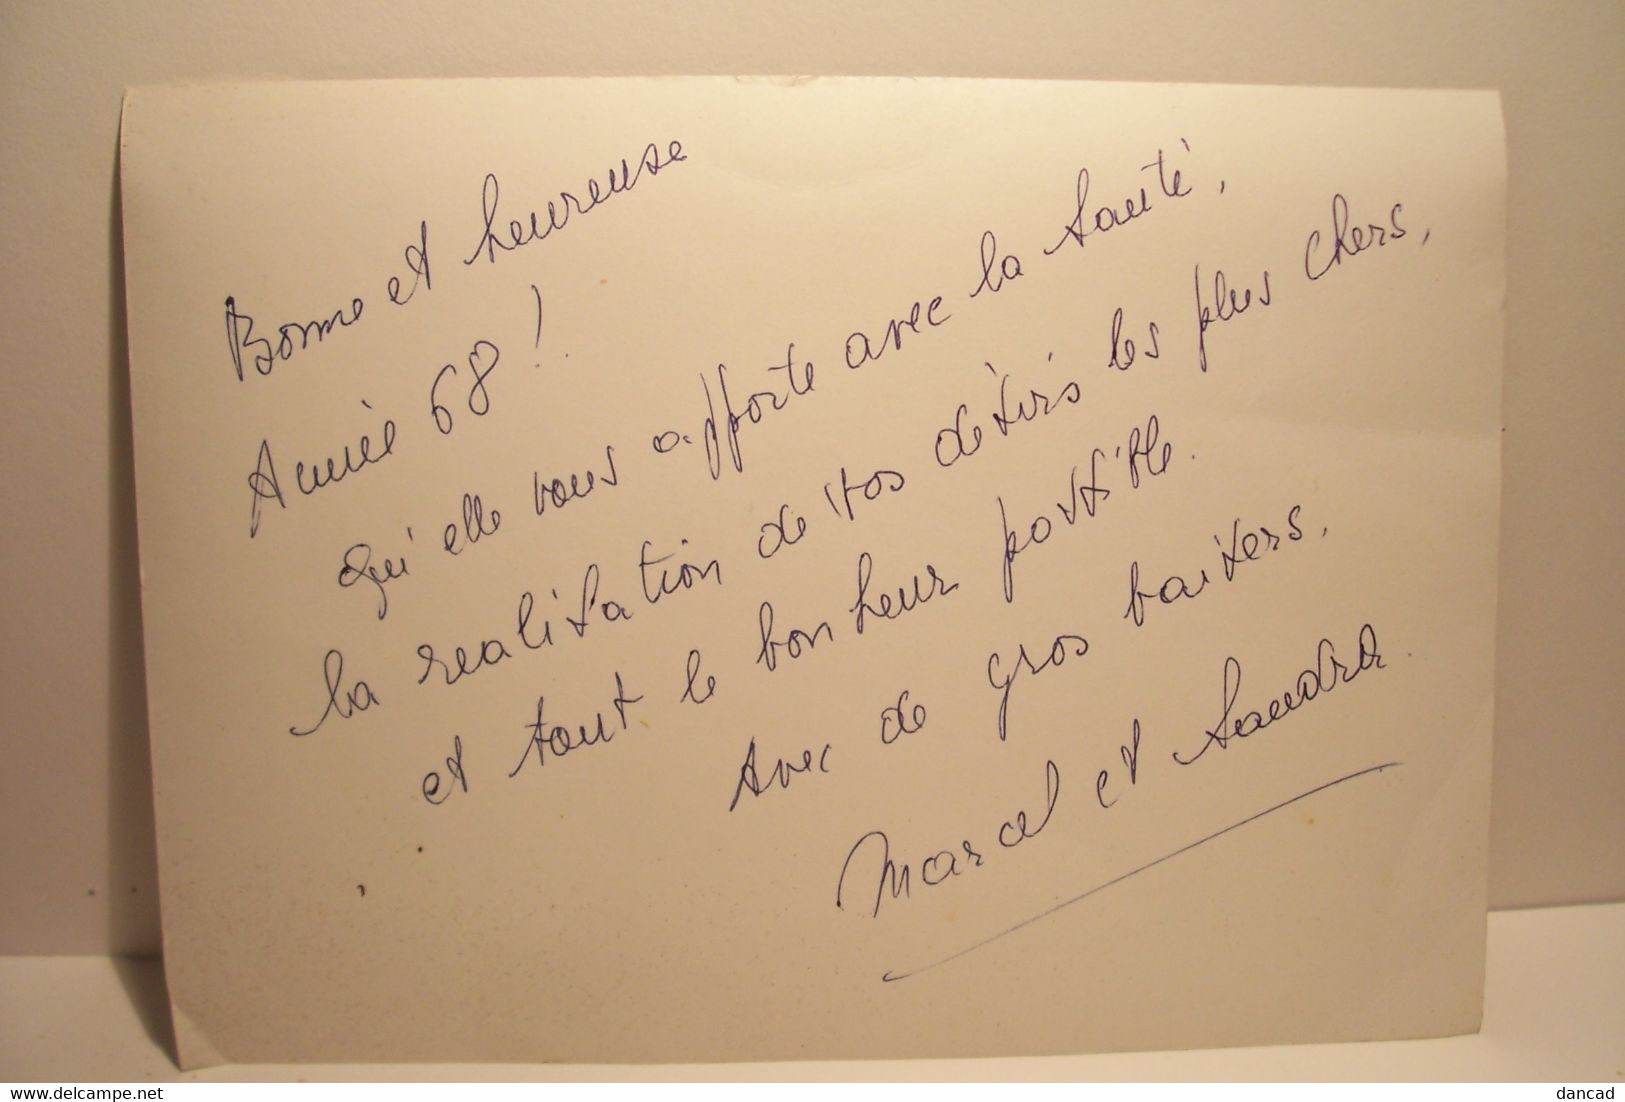 Bonne et heureuse
Année 68 !
Qu'elle vous apporte avec la santé,
la realisation de vos désirs les plus chers,
et tout le bonheur possible.
Avec de gros baisers.
Marcel et Sandra.
www.delcampe.net
dancad